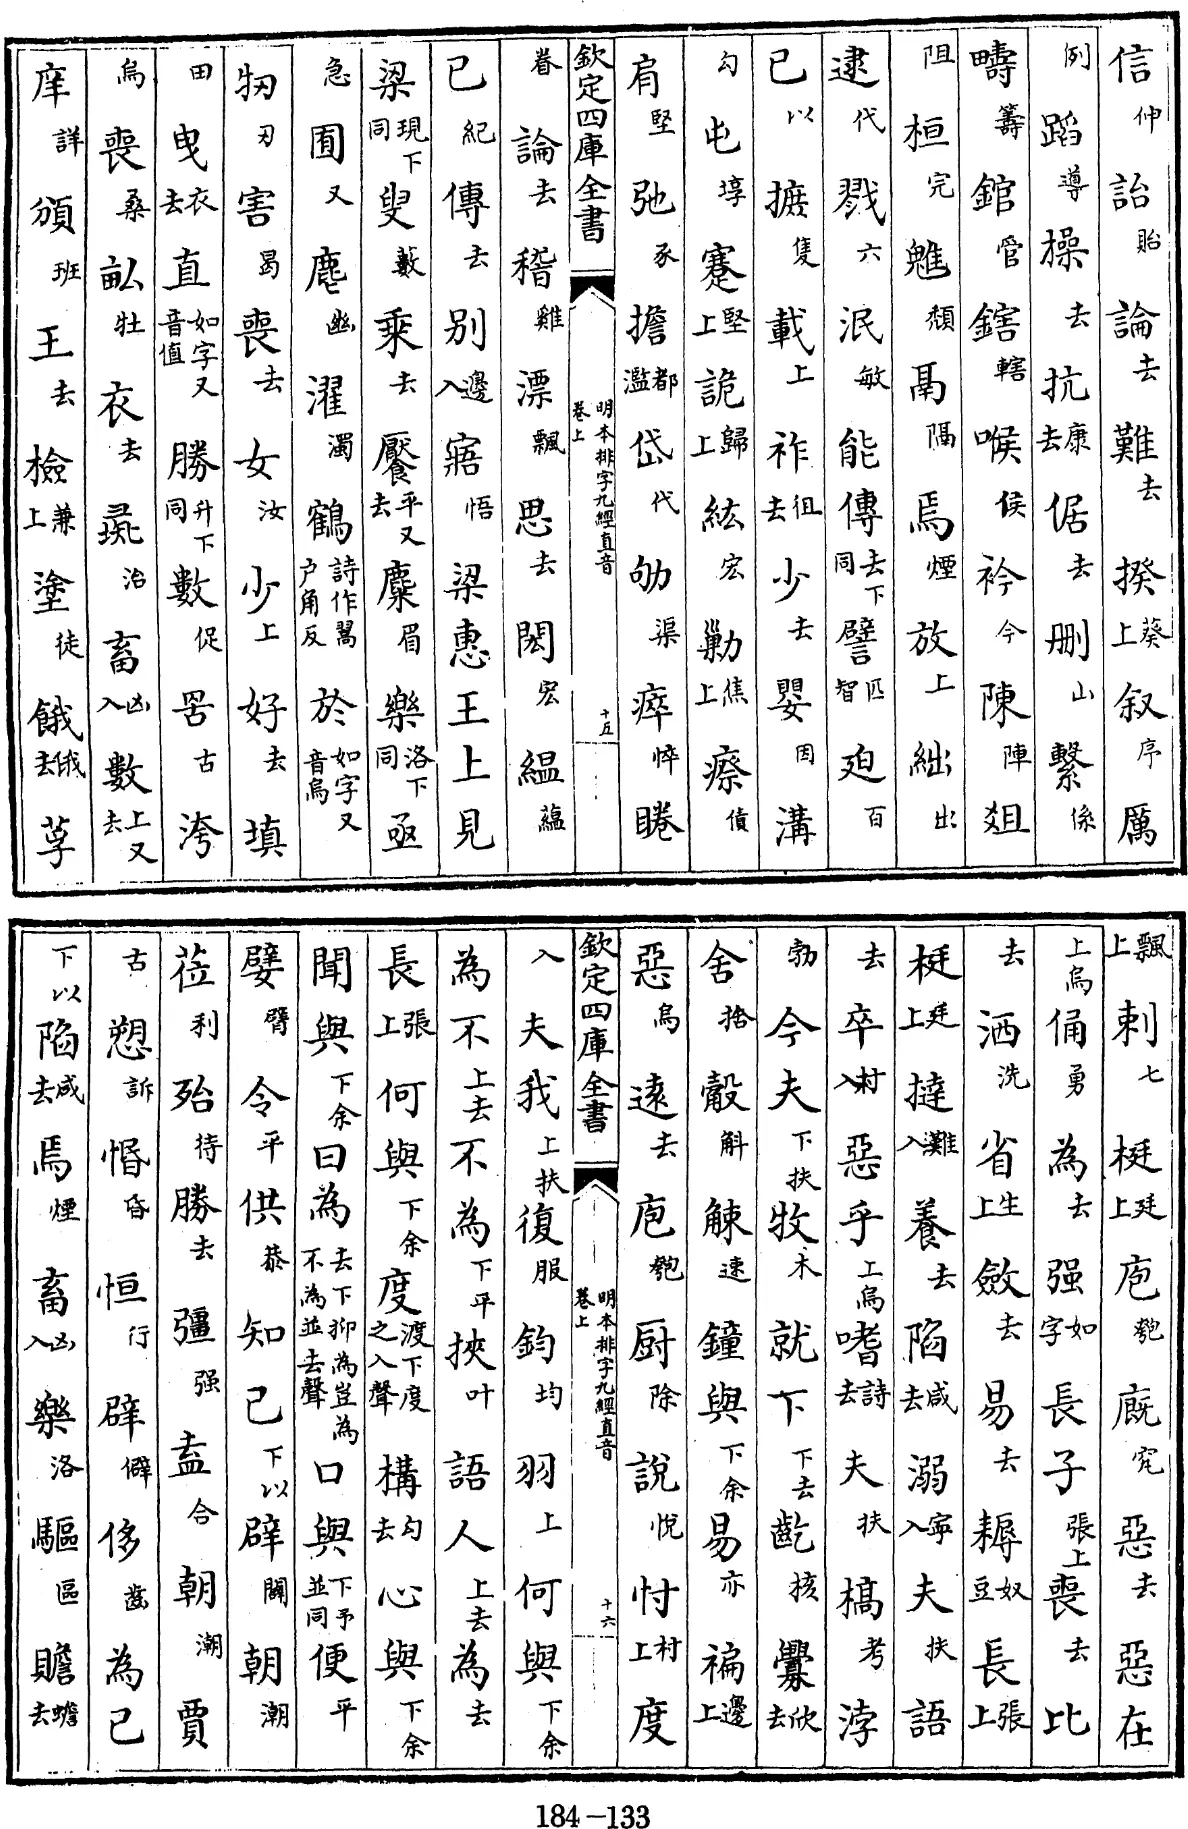 信仲詒貽論去難去揆葵上叙序厲
例蹈導操去抗康去倨去删山繫係
疇籌錧管鎋轄喉侯衿今陳陣爼
阻桓完魋頹鬲隔焉煙放上絀出
逮代戮六泯敏能傳去下同譬匹智廹百
已以摭隻載上祚徂去少去嬰因溝
勾屯埻蹇堅上詭歸上紘宏勦焦上瘵債
肩堅弛豕擔都濫岱代劬渠瘁悴睠
欽定四庫全書 明本排字九經直音 卷上 十五
眷論去稽雞漂飄思去閎宏緼藴
已紀傳去别邊入寤悟梁惠王上見
梁現下同叟藪乘去饜平又去麋眉樂洛下同亟
急囿又麀幽濯濁鶴詩作翯户角反於如字又音烏
牣刃害曷喪去女汝少上好去填
田曳衣去直如字又音值勝升下同數促罟古洿
烏喪桑畝牡衣去彘治畜凶入數上又去
庠詳頒班王去檢兼上塗徒餓俄去莩
飄上刺七梃廷上庖匏廐究惡去惡在
上烏俑勇為去强如字長子張上喪去比
去洒洗省生上斂去易去耨奴豆長張上
梃廷上撻灘入養去陷咸去溺寧入夫扶語
去卒村入惡乎上烏嗜詩去夫扶槁考浡
勃今夫下扶牧木就下下去齕核釁欣去
舍捨觳斛觫速鐘與下余易亦褊邊上
惡烏遠去庖匏厨除說悅忖村上度
欽定四庫全書 明本排字九經直音 卷上 十六
入夫我上扶復服鈞均羽上何與下余
為不上去不為下平挾叶語人上去為去
長張上何與下余度渡下度之入聲構勾去心與下余
聞與下余曰為去下抑為豈為不為並去聲口與下予並同便平
嬖臂令平供恭知已下以辟闢朝潮
莅利殆待勝去彊强盍合朝潮賈
古愬訴惛昏恒行辟僻侈齒為已
下以陷咸去焉煙畜凶入樂洛驅區贍蟾去
184-133